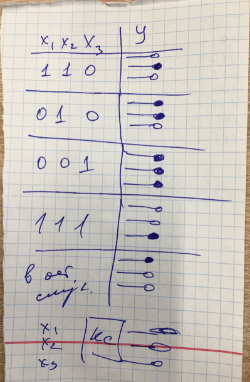 x₁ x₂ x₃ y
1 1 0
0 1 0
0 0 1
1 1 1
в ост
случ.
x₁
x₂ кс
x₃